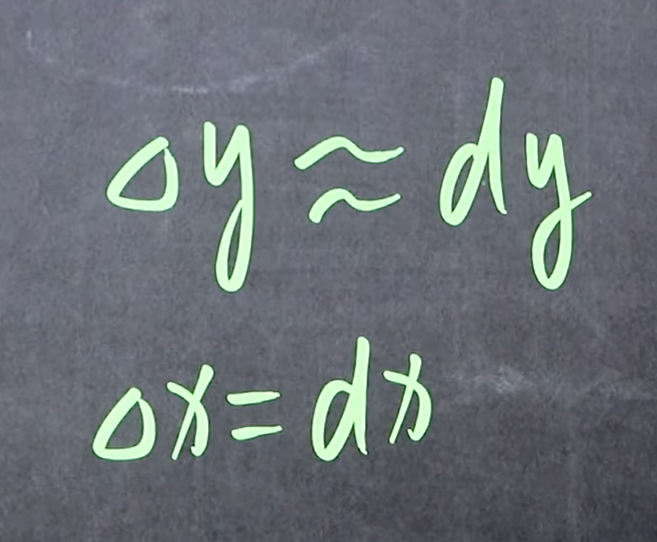 Δy ≈ dy
Δx = dx